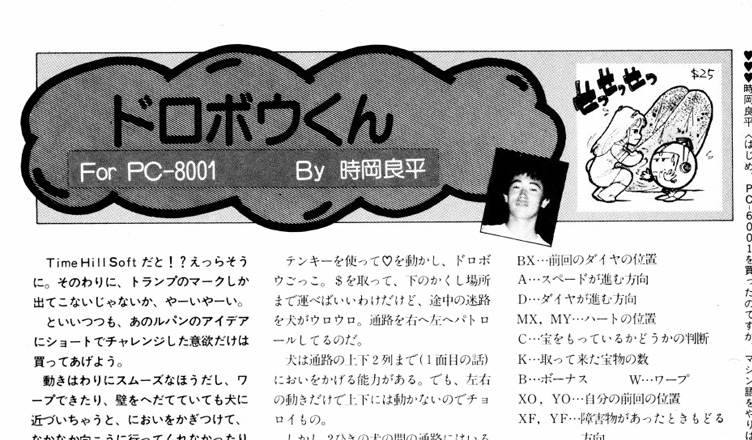 ドロボウくん
For PC-8001 By 時岡良平
ぜっぜっぜっ
$25
TimeHillSoftだと！？えっらそう
に。そのわりに、トランプのマークしか
出てこないじゃないか、やーいやーい。
といいつつも、あのルパンのアイデア
にショートでチャレンジした意欲だけは
買ってあげよう。
動きはわりにスムーズなほうだし、ワ
ープできたり、壁をへだてていても犬に
近づいちゃうと、においをかぎつけて、
なかなか向こうに行ってくれなかったり
テンキーを使って♡を動かし、ドロボ
ウごっこ。＄を取って、下のかくし場所
まで運べばいいわけだけど、途中の迷路
を犬がウロウロ。通路を右へ左へパトロ
ールしてるのだ。
犬は通路の上下2列まで(1面目の話)
においをかげる能力がある。でも、左右
の動きだけで上下には動かないのでチョ
ロイもの。
しかし 2ひきの犬の間の通路にはいる
BX…前回のダイヤの位置
A…スペードが進む方向
D…ダイヤが進む方向
MX，MY…ハートの位置
C…宝をもっているかどうかの判断
K…取って来た宝物の数
B…ボーナス W…ワープ
XO，YO…自分の前回の位置
XF，YF…障害物があったときもどる
方向
♥♥時岡良平〈はじめ、PC-6001を買ったのですが、マシン語をやり